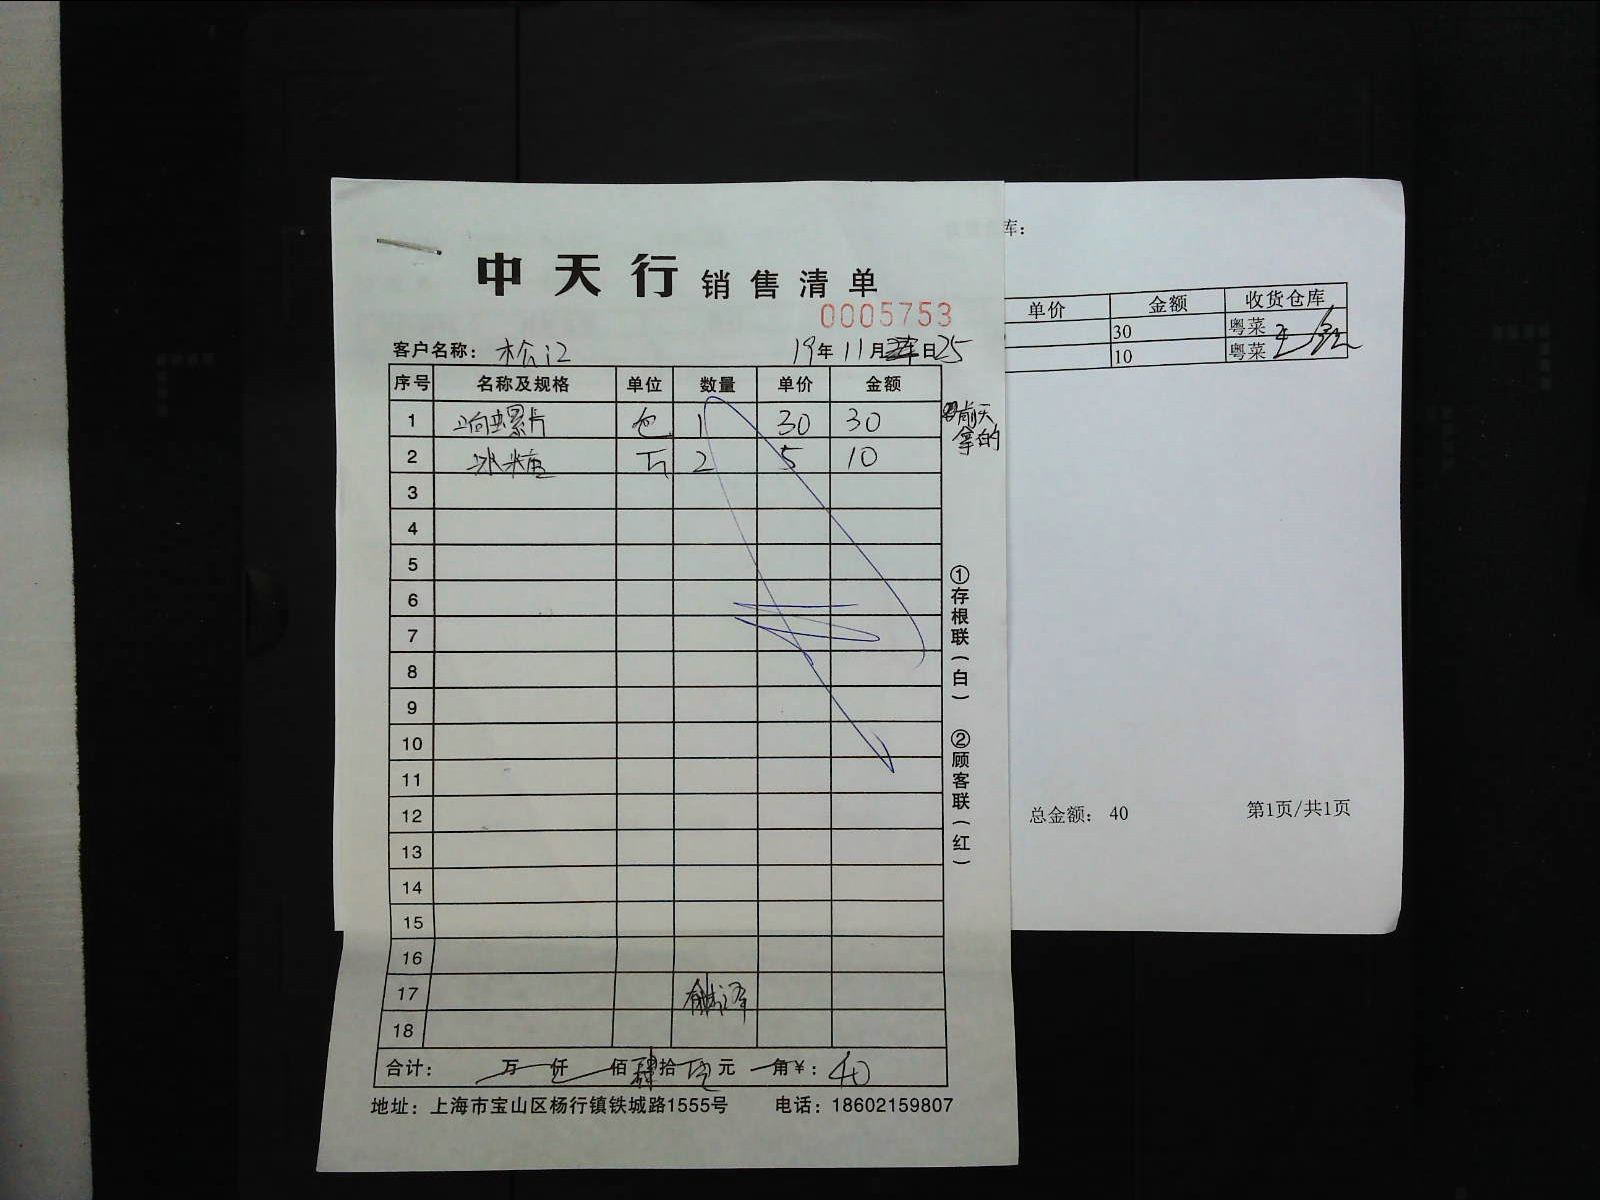 中天行销售清单
0005753
客户名称： 松江 19年11月日25
序号 名称及规格 单位 数量 单价 金额
1 响螺片 包 1 30 30
前天
拿的
2 冰糖 斤 2 5 10
3
4
5
6
7
8
9
10
11
12
13
14
15
16
17
18
合计： 万 仟 佰 肆拾 元 角￥：40
地址：上海市宝山区杨行镇铁城路1555号 电话：18602159807
①存根联(白) ②顾客联(红)
库：
单价 金额 收货仓库
30 粤菜
10 粤菜
总金额： 40 第1页/共1页